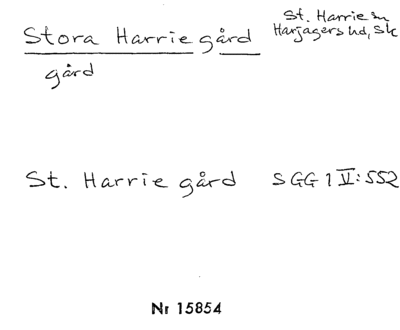 Stora Harrie gård
St. Harrie sn
Harjagers hd, Sk
gård
St. Harrie gård SGG 1 V: 552
Nr 15854